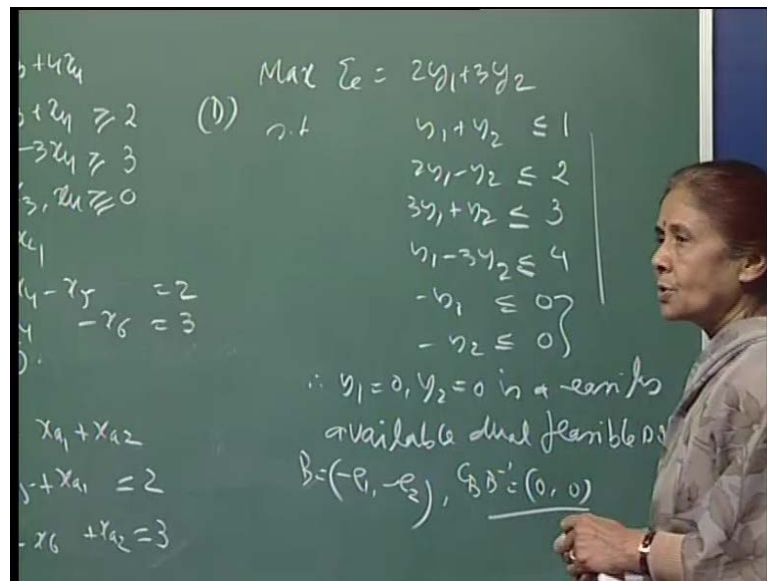 3 + 4x4
3 + 2x4 ≥ 2
-3x4 ≥ 3
x3, x4 ≥ 0
x4 - x5 = 2
- x6 = 3
xa1 + xa2
+ xa1 = 2
- x6 + xa2 = 3
(D) Max = 2y1+3y2
s.t y1+y2 ≤ 1
2y1-y2 ≤ 2
3y1+y2 ≤ 3
y1-3y2 ≤ 4
-y1 ≤ 0
-y2 ≤ 0
∴ y1=0, y2=0 is a easily
available dual feasible
B=(-e1, -e2), CB B⁻¹=(0, 0)